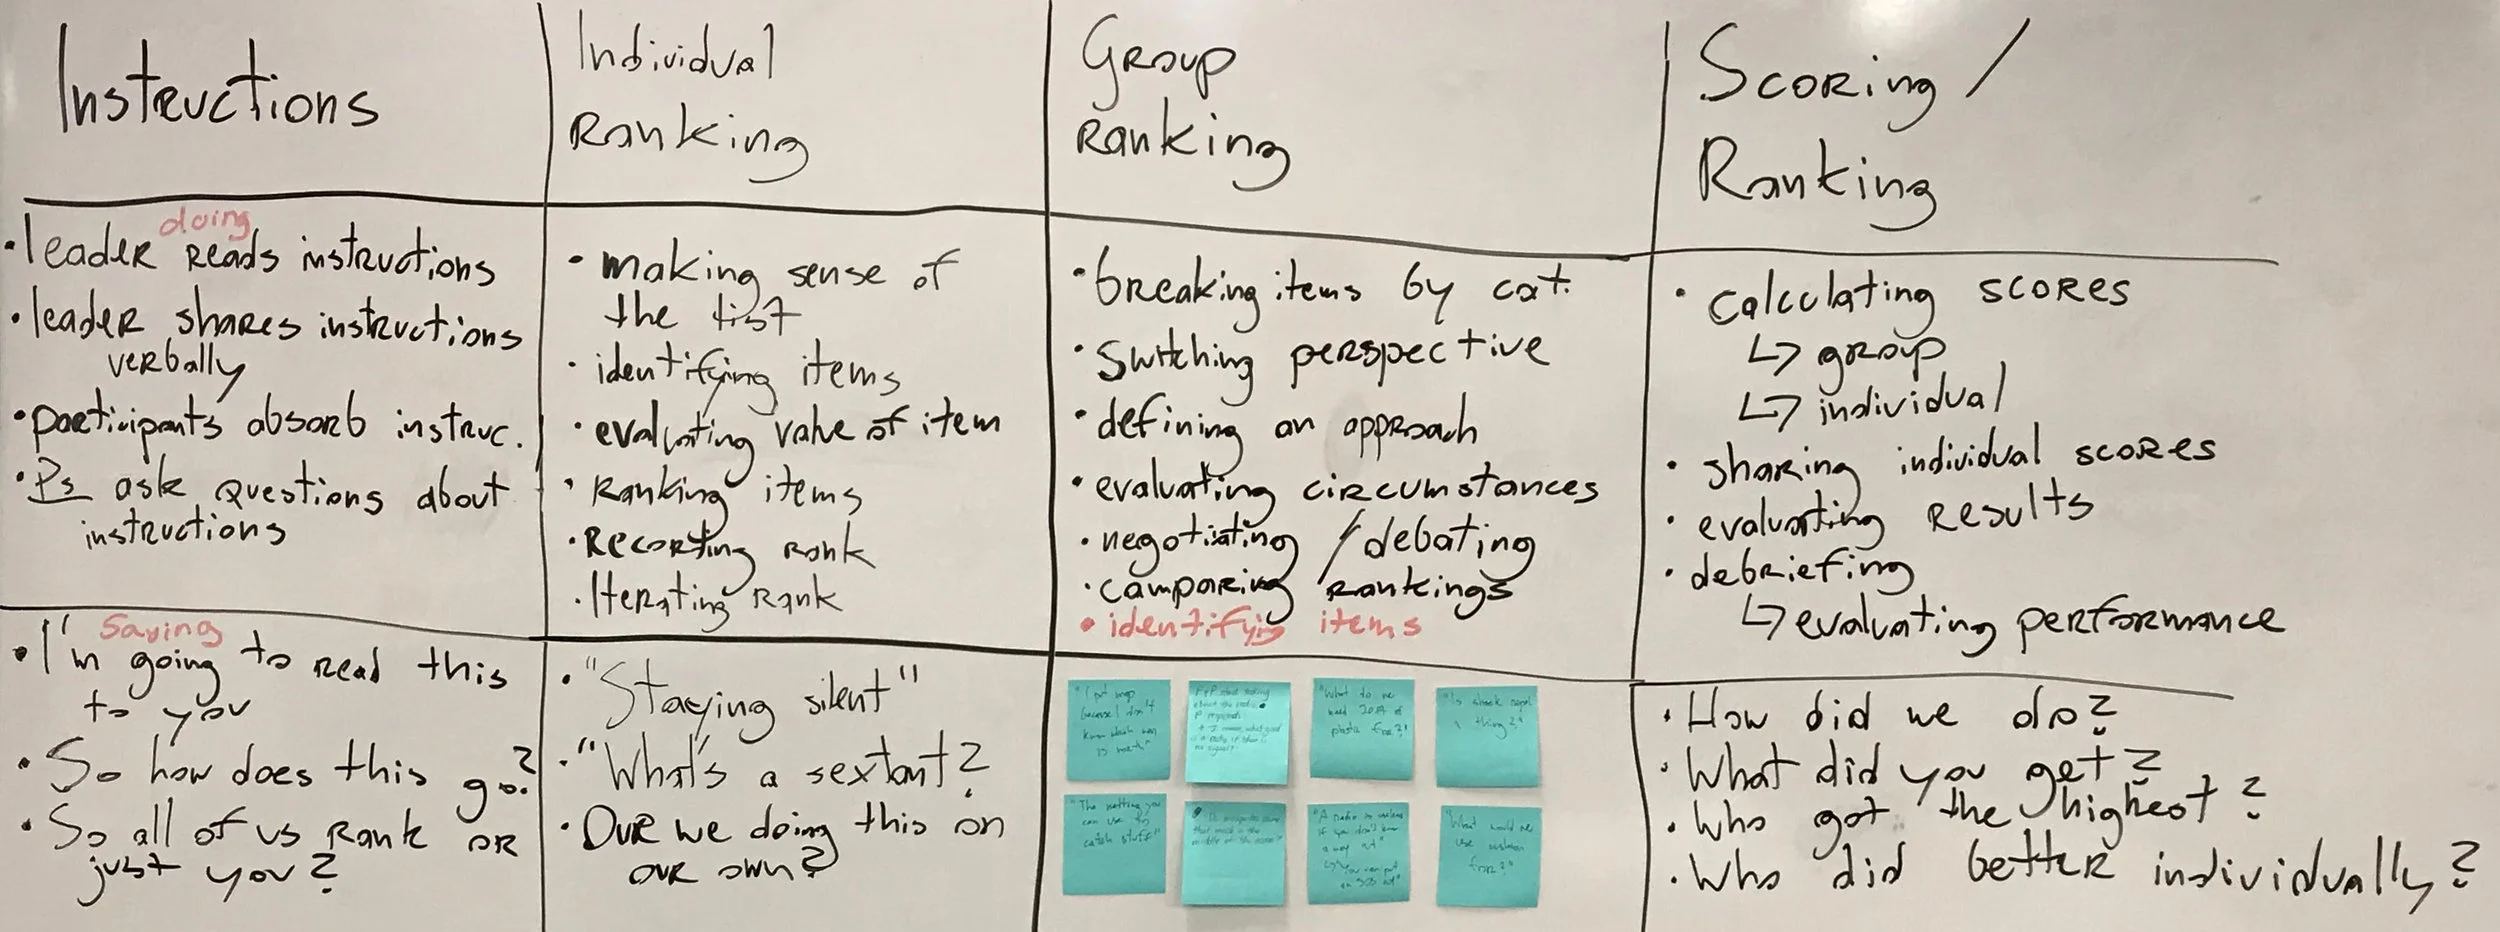 Instructions
Individual
Ranking
Group
Ranking
Scoring /
Ranking
doing
• leader reads instructions
• leader shares instructions
verbally
• participants absorb instruc.
• Ps ask questions about
instructions
• making sense of
the list
• identifying items
• evaluating value of item
• Ranking items
• Recording rank
• Iterating rank
• breaking items by cat.
• Switching perspective
• defining an approach
• evaluating circumstances
• negotiating / debating
• comparing / rankings
• identifyig items
• calculating scores
↳ group
↳ individual
• sharing individual scores
• evaluating results
• debriefing
↳ evaluating performance
saying
• I'm going to read this
to you
• So how does this go?
• So all of us rank or
just you?
• "Staying silent"
• "What's a sextant?
• Our we doing this on
our own?
"I put map
because I don't
know which way
is north"
P+P start talking
about the radio
P responds
+ I mean, what good
is a radio if there is
no signal?
"What do we
need 20ft of
plastic for?"
"Is shark repel
a thing?"
"The netting you
can use to
catch stuff"
middle of the ocean?
"A radio is useless
if you don't know
a way out"
"You can put
an SOS out"
"What would we
use
for?"
• How did we do?
• What did you get?
• Who got the highest?
• Who did better individually?